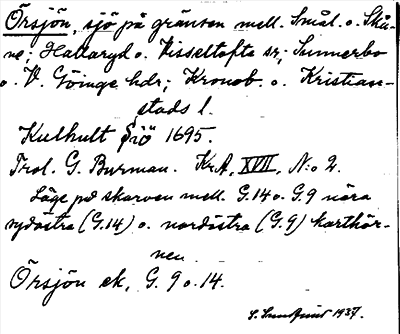 Örsjön, sjö på gränsen mell. Smål. o. Skå-
ne; Hallaryd o. Visseltofta sr; Sunnerbo
o. V. Göinge hdr; Kronob. o. Kristian-
stads l.
Kulhult Siö 1695.
Trol. G. Burman. KrA, XVII, N:o 2.
Läge på skarven mell. G.14 o. G.9 nära
sydöstra (G.14) o. nordöstra (G.9) karthör-
nen.
Örsjön ek. G. 9 o. 14.
S. 1937.